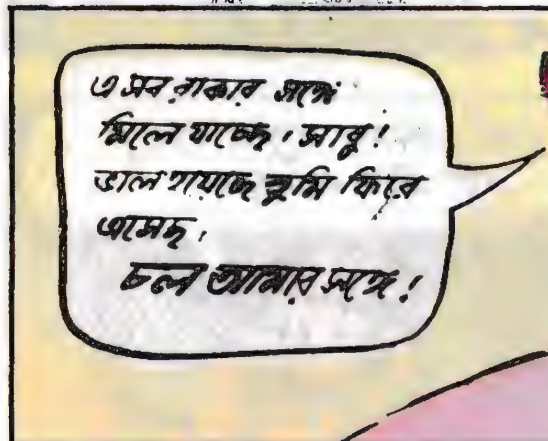 এ সব রাকার সঙ্গে
মিলে যাচ্ছে। সাবু!
ভাল হয়েছে তুমি ফিরে
এসেছ।
চল আমার সঙ্গে!